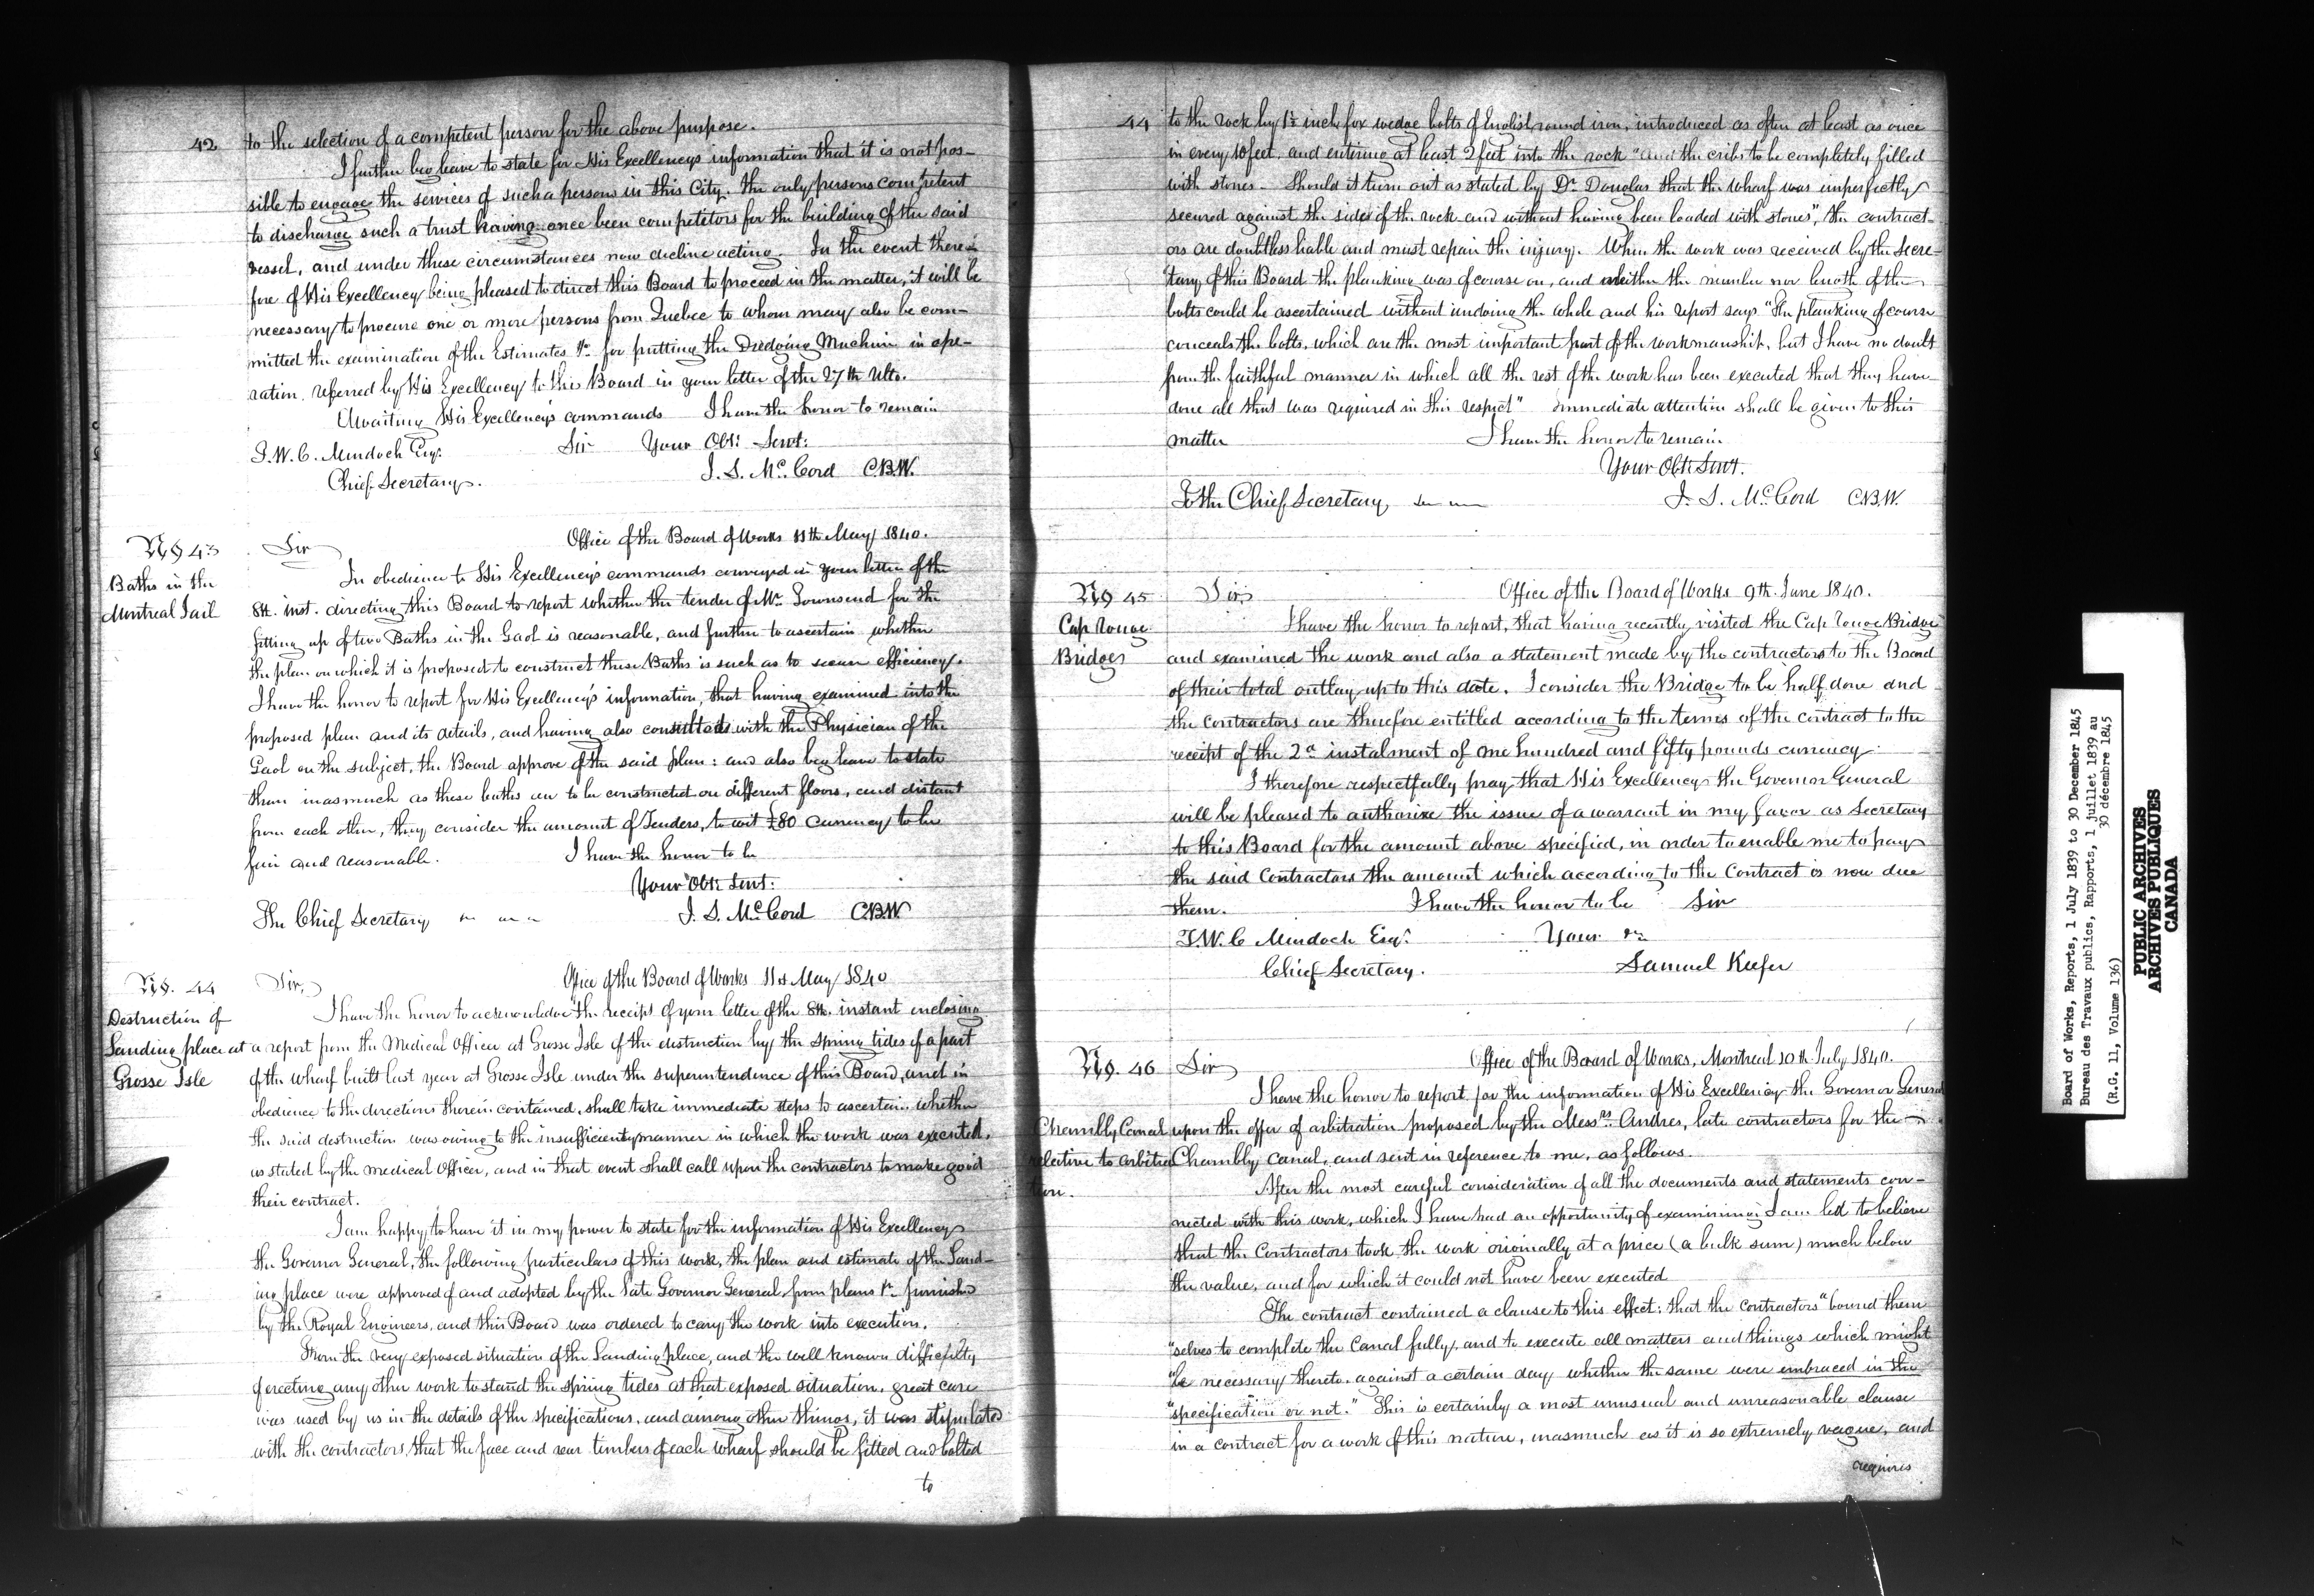 42 to the selection of a competent person for the above purpose.
I further beg leave to state for His Excellencys information that it is not pos-
sible to engage the services of such a person in this City. the only persons competent
to discharge such a trust having once been competitors for the building of the said
vessel, and under these circumstances now decline acting. In the event there-
fore of His Excellency being pleased to direct this Board to proceed in the matter, it will be
necessary to procure one or more persons from Quebec to whom may also be com-
mitted the examination of the Estimates &c. for putting the Dredging Machine in ope-
ration, referred by His Excellency to this Board in your letter of the 27th Ulto.
Awaiting His Excellency's commands I have the honor to remain
Sir Your Obt: Servt:
T. W. C. Murdoch Esq:
J. S. McCord C.B.W.
Chief Secretary.
No 43
Baths in the
Montreal Jail
Office of the Board of Works 11th May 1840.
Sir
In obedience to His Excellency's commands conveyed in your letter of the
8th. inst. directing this Board to report whether the tender of Mr. Townsend for the
fitting up of two Baths in the Gaol is reasonable, and further to ascertain whether
the plan on which it is proposed to construct these Baths is such as to secure efficiency.
I have the honor to report for His Excellency's information, that having examined into the
proposed plan and its details, and having also consulted with the Physician of the
Gaol on the subject, the Board approve of the said plan: and also beg leave to state
them inasmuch as these baths are to be constructed on different floors, and distant
from each other, they consider the amount of Tenders, to wit £80 currency to be
fair and reasonable. I have the honor to be
Your Obt: Servt:
The Chief Secretary J. S. McCord C.B.W
No. 44
Destruction of
Landing place at
Grosse Isle
Office of the Board of Works 11th May 1840
Sir,
I have the honor to acknowledge the receipt of your letter of the 8th. instant enclosing
a report from the Medical Officer at Grosse Isle of the destruction by the spring tides of a part
of the wharf built last year at Grosse Isle under the superintendence of this Board, and in
obedience to the directions therein contained, shall take immediate steps to ascertain whether
the said destruction was owing to the insufficient manner in which the work was executed,
as stated by the medical Officer, and in that event shall call upon the contractors to make good
their contract.
I am happy to have it in my power to state for the information of His Excellency
the Governor General, the following particulars of this work, the plan and estimate of the Land-
ing place were approved of and adopted by the late Governor General from plans &c. furnished
by the Royal Engineers, and this Board was ordered to carry the work into execution.
From the very exposed situation of the Landing place, and the well known difficulty
of erecting any other work to stand the spring tides at that exposed situation, great care
was used by us in the details of the specifications, and among other things, it was stipulated
with the contractors, that the face and rear timbers of each wharf should be fitted and bolted
to
44 to the rock by 1½ inch fox wedge bolts of English round iron, introduced as often at least as once
in every 10 feet, and entering at least 2 feet into the rock "and the cribs to be completely filled
with stones - Should it turn out as stated by Dr. Douglas that the wharf was imperfectly
secured against the side of the rock and without having been loaded with stones", the contract-
ors are doubtless liable and must repair the injury. When the work was received by the Secre-
tary of this Board the planking was of course on, and neither the number nor length of the
bolts could be ascertained without undoing the whole and his report says "The planking of course
conceals the bolts, which are the most important part of the workmanship, but I have no doubt
from the faithful manner in which all the rest of the work has been executed that they have
done all that was required in this respect" Immediate attention shall be given to this
matter I have the honor to remain
Your Obt: Servt.
To the Chief Secretary J. S. McCord C.B.W.
No 45
Cap rouge
Bridge
Office of the Board of Works 9th. June 1840.
Sir,
I have the honor to report, that having recently visited the Cap rouge Bridge
and examined the work and also a statement made by the contractors to the Board
of their total outlay up to this date. I consider the Bridge to be half done and
the contractors are therefore entitled according to the terms of the contract to the
receipt of the 2d instalment of one hundred and fifty pounds currency.
I therefore respectfully pray that His Excellency the Governor General
will be pleased to authorize the issue of a warrant in my favor as Secretary
to this Board for the amount above specified, in order to enable me to pay
the said Contractors the amount which according to the Contract is now due
them. I have the honor to be Sir
T. W. C Murdoch Esq: Your &c
Chief Secretary. Samuel Keefer
No. 46
Chambly Canal
relative to arbitra
tion.
Office of the Board of Works, Montreal 10th July 1840.
Sir
I have the honor to report for the information of His Excellency the Governor General
upon the offer of arbitration proposed by the Messrs. Andres, late contractors for the
Chambly Canal, and sent in reference to me, as follows.
After the most careful consideration of all the documents and statements con-
nected with this work, which I have had an opportunity of examining I am led to believe
that the Contractors took the work originally at a price (a bulk sum) much below
the value, and for which it could not have been executed
The contract contained a clause to this effect: that the contractors "bound them
"selves to complete the Canal fully, and to execute all matters and things which might
"be necessary thereto, against a certain day whether the same were embraced in the
"specification or not." This is certainly a most unusual and unreasonable clause
in a contract for a work of this nature, inasmuch as it is so extremely vague, and
requires
Board of Works, Reports, 1 July 1839 to 30 December 1845
Bureau des Travaux publics, Rapports, 1 juillet 1839 au
30 décembre 1845
(R.G. 11, Volume 136)
PUBLIC ARCHIVES
ARCHIVES PUBLIQUES
CANADA